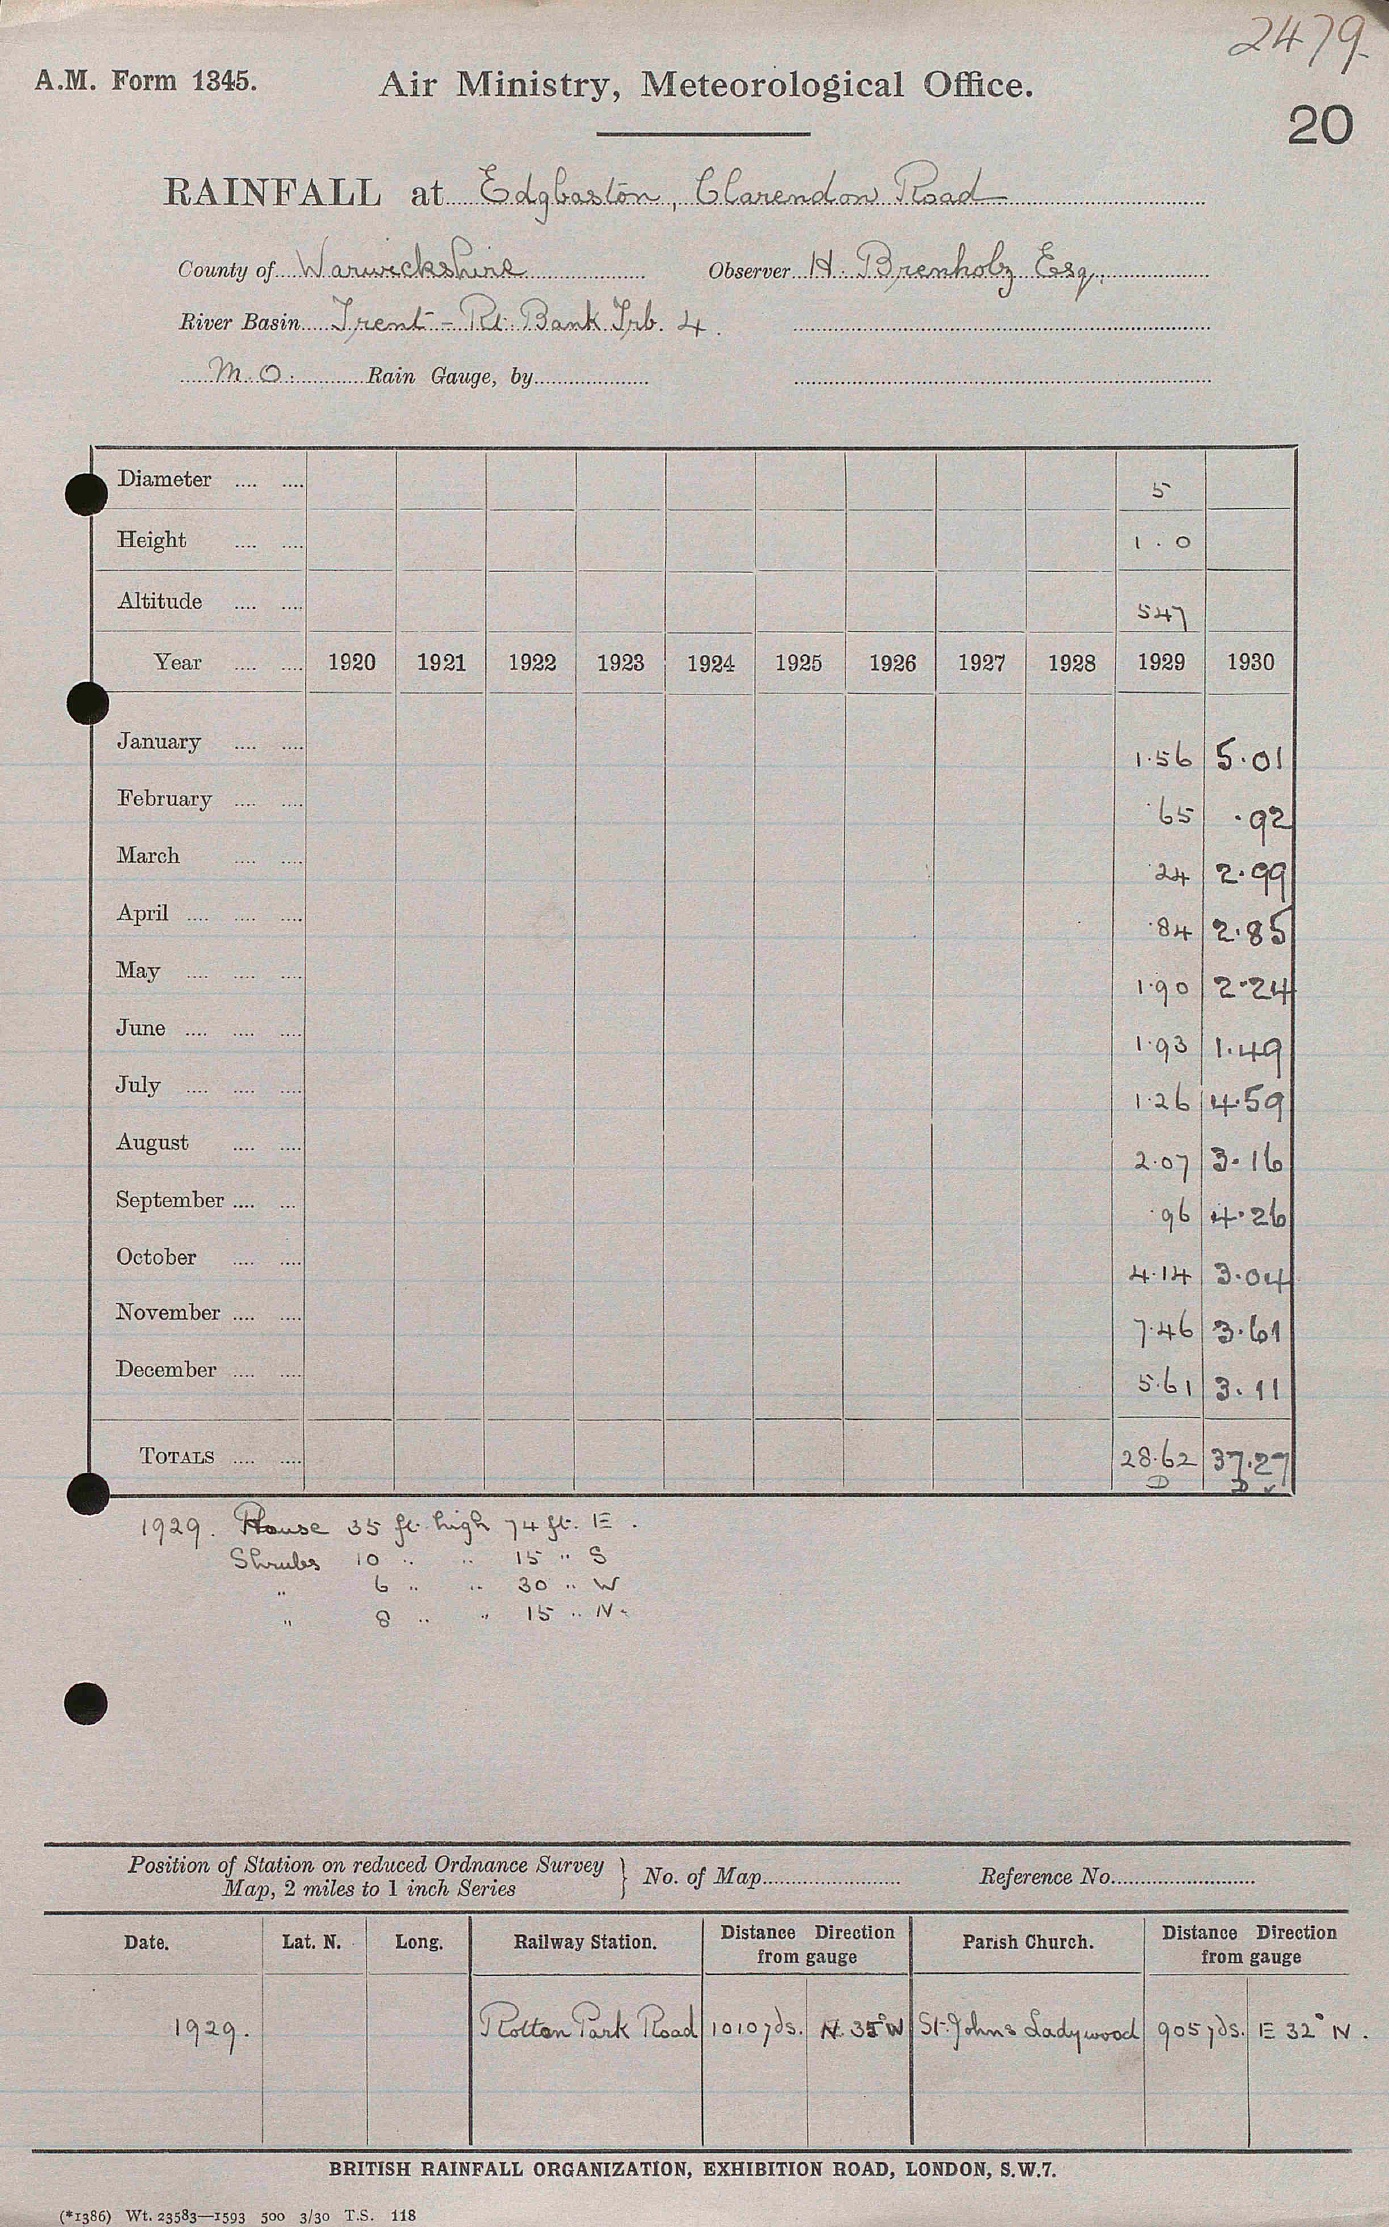 2479.
A.M. Form 1345. Air Ministry, Meteorological Office.
20
RAINFALL at Edgbaston, Clarendon Road
County of Warwickshire Observer H. Brenholz Esq.
River Basin Trent - Rt. Bank Trb. 4.
M.O. Rain Gauge, by
Diameter 5
Height 1.0
Altitude 547
Year 1920 1921 1922 1923 1924 1925 1926 1927 1928 1929 1930
January 1.56 5.01
February .65 .92
March .24 2.99
April .84 2.85
May 1.90 2.24
June 1.93 1.49
July 1.26 4.59
August 2.07 3.16
September .96 4.26
October 4.14 3.04
November 7.46 3.61
December 5.61 3.11
TOTALS 28.62 37.27
D D ✓
1929. House 35 ft. high 74 ft. E.
Shrubs 10 " " 15 " S
" 6 " " 30 " W
" 8 " " 15 " N.
Position of Station on reduced Ordnance Survey
Map, 2 miles to 1 inch Series } No. of Map Reference No.
Date. Lat. N. Long. Railway Station. Distance Direction from gauge Parish Church. Distance Direction from gauge
1929. Rotton Park Road 1010 yds. N. 35° W St. Johns Ladywood 905 yds. E 32° N.
BRITISH RAINFALL ORGANIZATION, EXHIBITION ROAD, LONDON, S.W.7.
(*1386) Wt. 23583—1593 500 3/30 T.S. 118